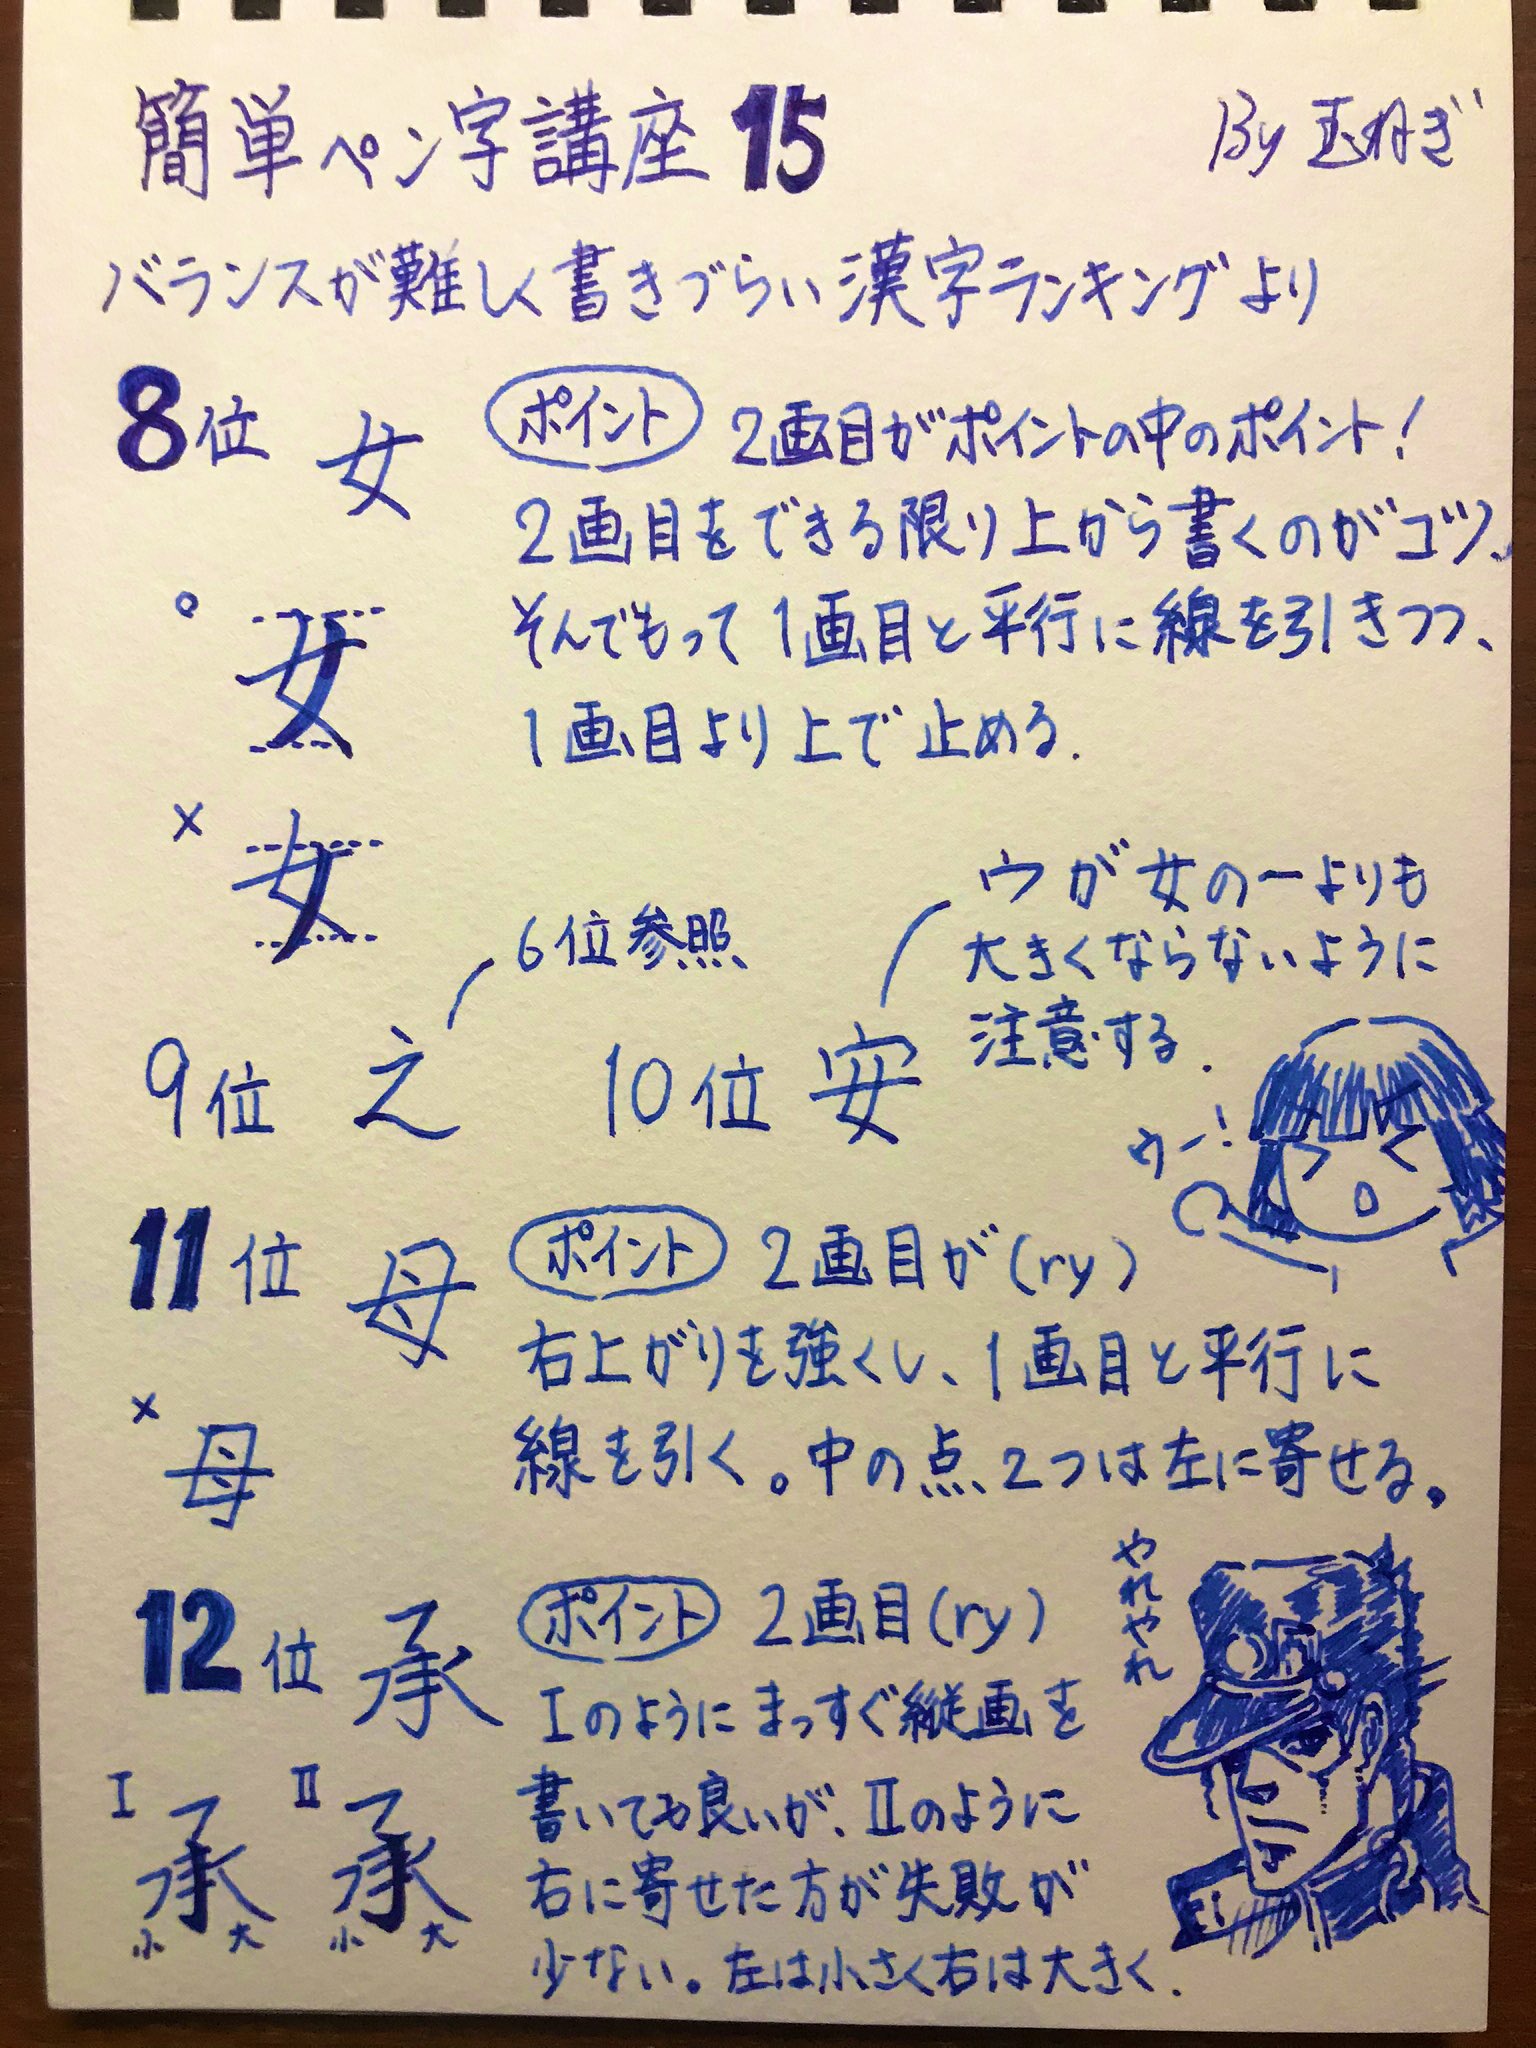 簡単ペン字講座 15
By 玉ねぎ
バランスが難しく書きづらい漢字ランキングより
8位 女 ポイント 2画目がポイントの中のポイント!
2画目をできる限り上から書くのがコツ、
そんでもって1画目と平行に線を引きつつ、
1画目より上で止める.
° 女
× 女
9位 之
6位参照
10位 安
ウが女の一よりも
大きくならないように
注意する.
ウー!
11位 母 ポイント 2画目が(ry)
右上がりを強くし、1画目と平行に
線を引く。中の点2つは左に寄せる。
× 母
12位 承 ポイント 2画目(ry)
Iのようにまっすぐ縦画を
書いても良いが、IIのように
右に寄せた方が失敗が
少ない。左は小さく右は大きく.
I 承 小 大
II 承 小 大
やれやれ